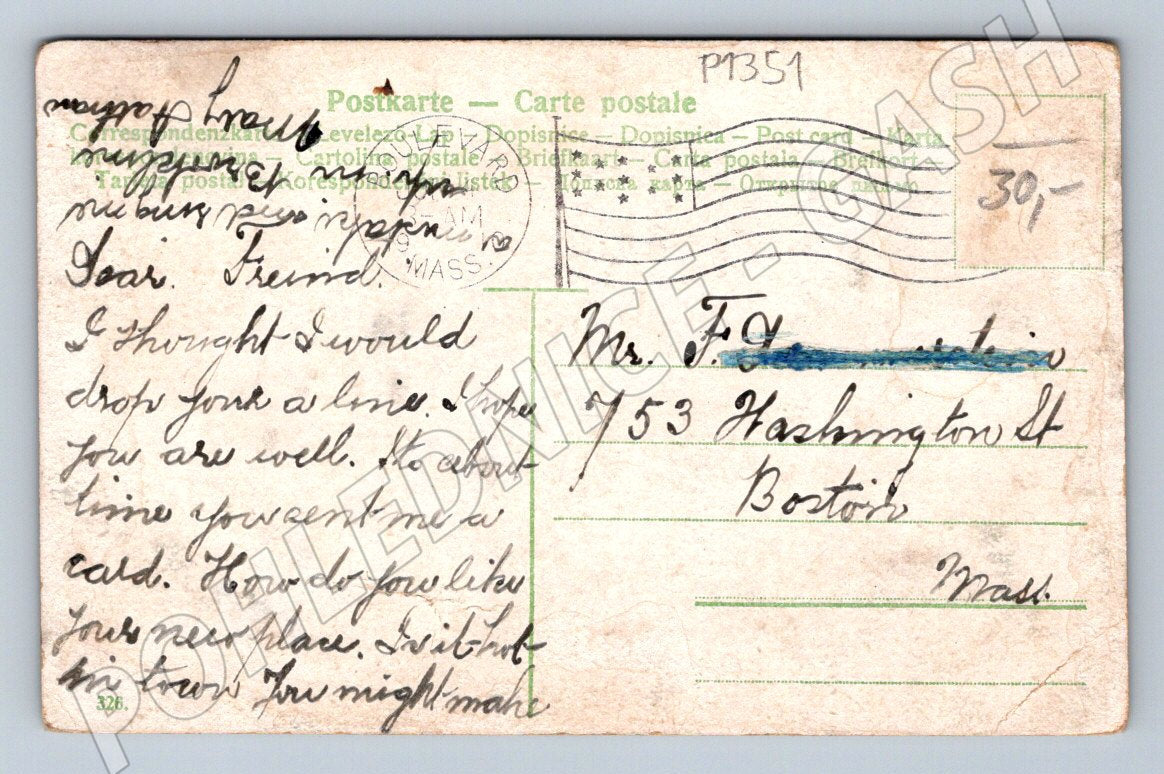 P1351
Postkarte — Carte postale
Correspondenzkarte Levelező-Lap — Dopisnice — Dopisnica — Post card — Karta
— Cartolina postale — Briefkaart — Carta postala — Brefkort
Tarjeta postal — Korespondenční lístek — — Открытое письмо
BOULEVARD
AM
MASS.
30,-
Dear. Freind.
I thought I would
drop your a line. I hope
you are well. Its about
time you sent me a
card. How do you like
your new place. Is it hot
in town You might make
a up
Brookline
Mary
Mr. F.
753 Washington St
Boston
Mass.
326.
POHLEDNICE - CASH